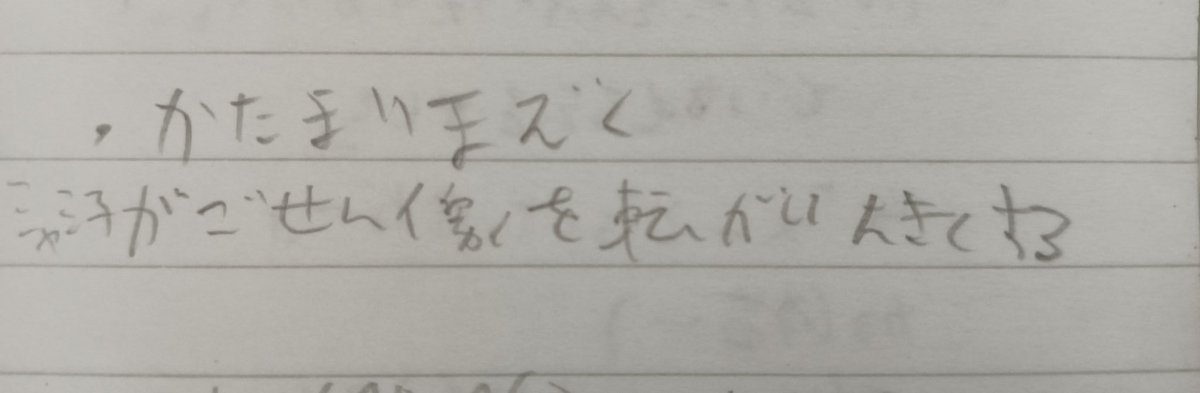 ・かたまりまずく
がごせん像を転がし大きくする